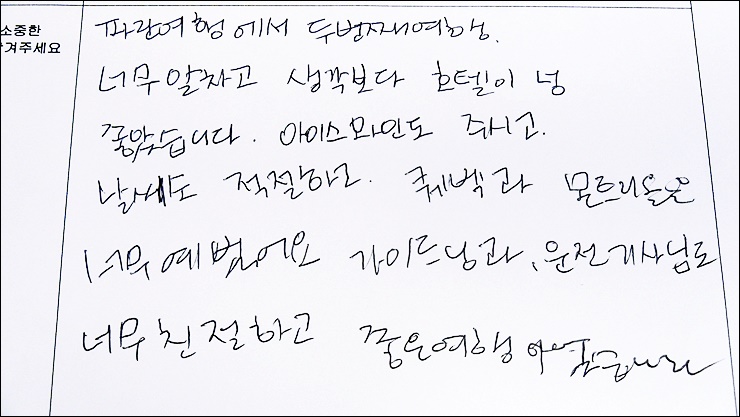 소중한
겨주세요
파란여행에서 두번째여행.
너무알차고 생각보다 호텔이 넘
좋았습니다. 아이스와인도 주시고.
날씨도 적절하고. 퀘벡과 몬트리올은
너무예뻤어요 가이드님과, 운전기사님도
너무친절하고 좋은여행이었습니다